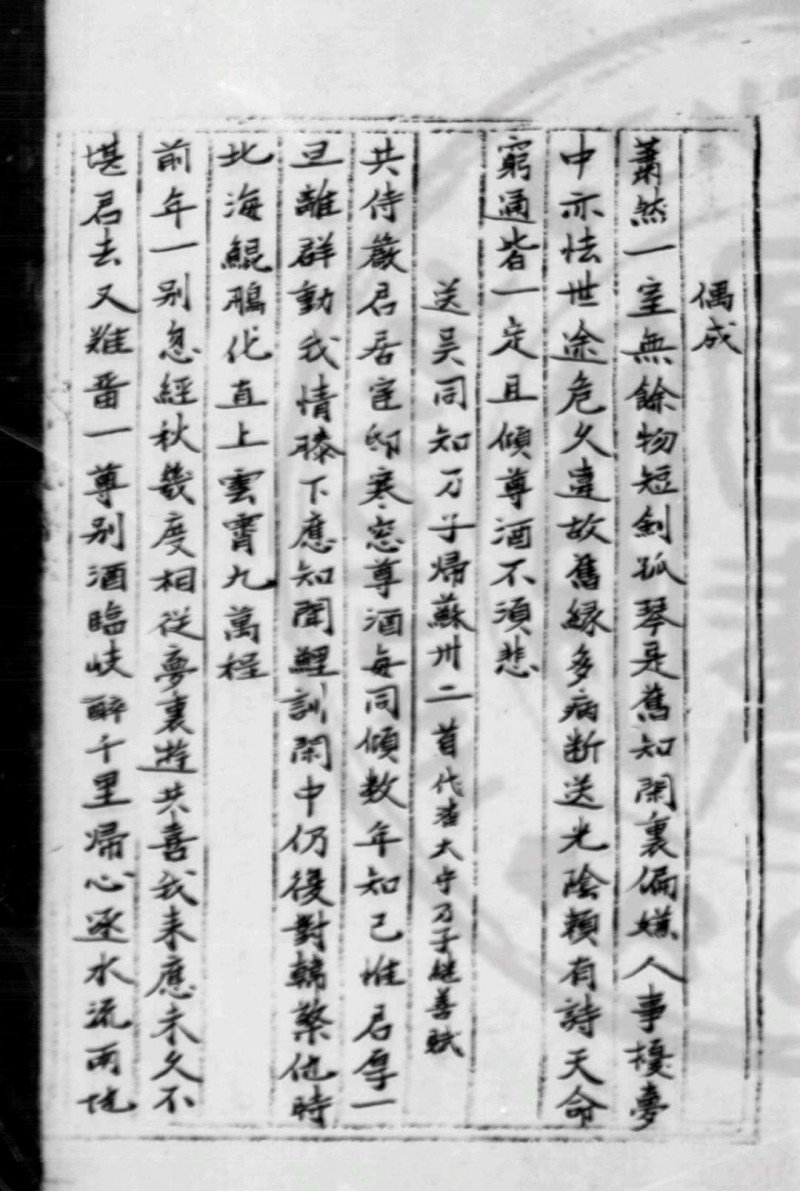 偶成
蕭然一室無餘物短劍孤琴是舊知閑裏偏嫌人事擾夢
中亦怯世途危久違故舊緣多病斷送光陰賴有詩天命
窮通皆一定且傾尊酒不須悲
送吴同知乃子帰蘇州二首代潘大守乃子継善賦
共侍嚴君居宦邸寒窓尊酒每同傾数年知己惟君厚一
旦離群動我情膝下應知聞鯉訓閑中仍復對韓檠他時
北海鯤鵬化直上雲霄九萬程
前年一别忽經秋幾度相從夢裏遊共喜我来應未久不
堪君去又難畱一尊别酒臨岐醉千里帰心逐水流两地